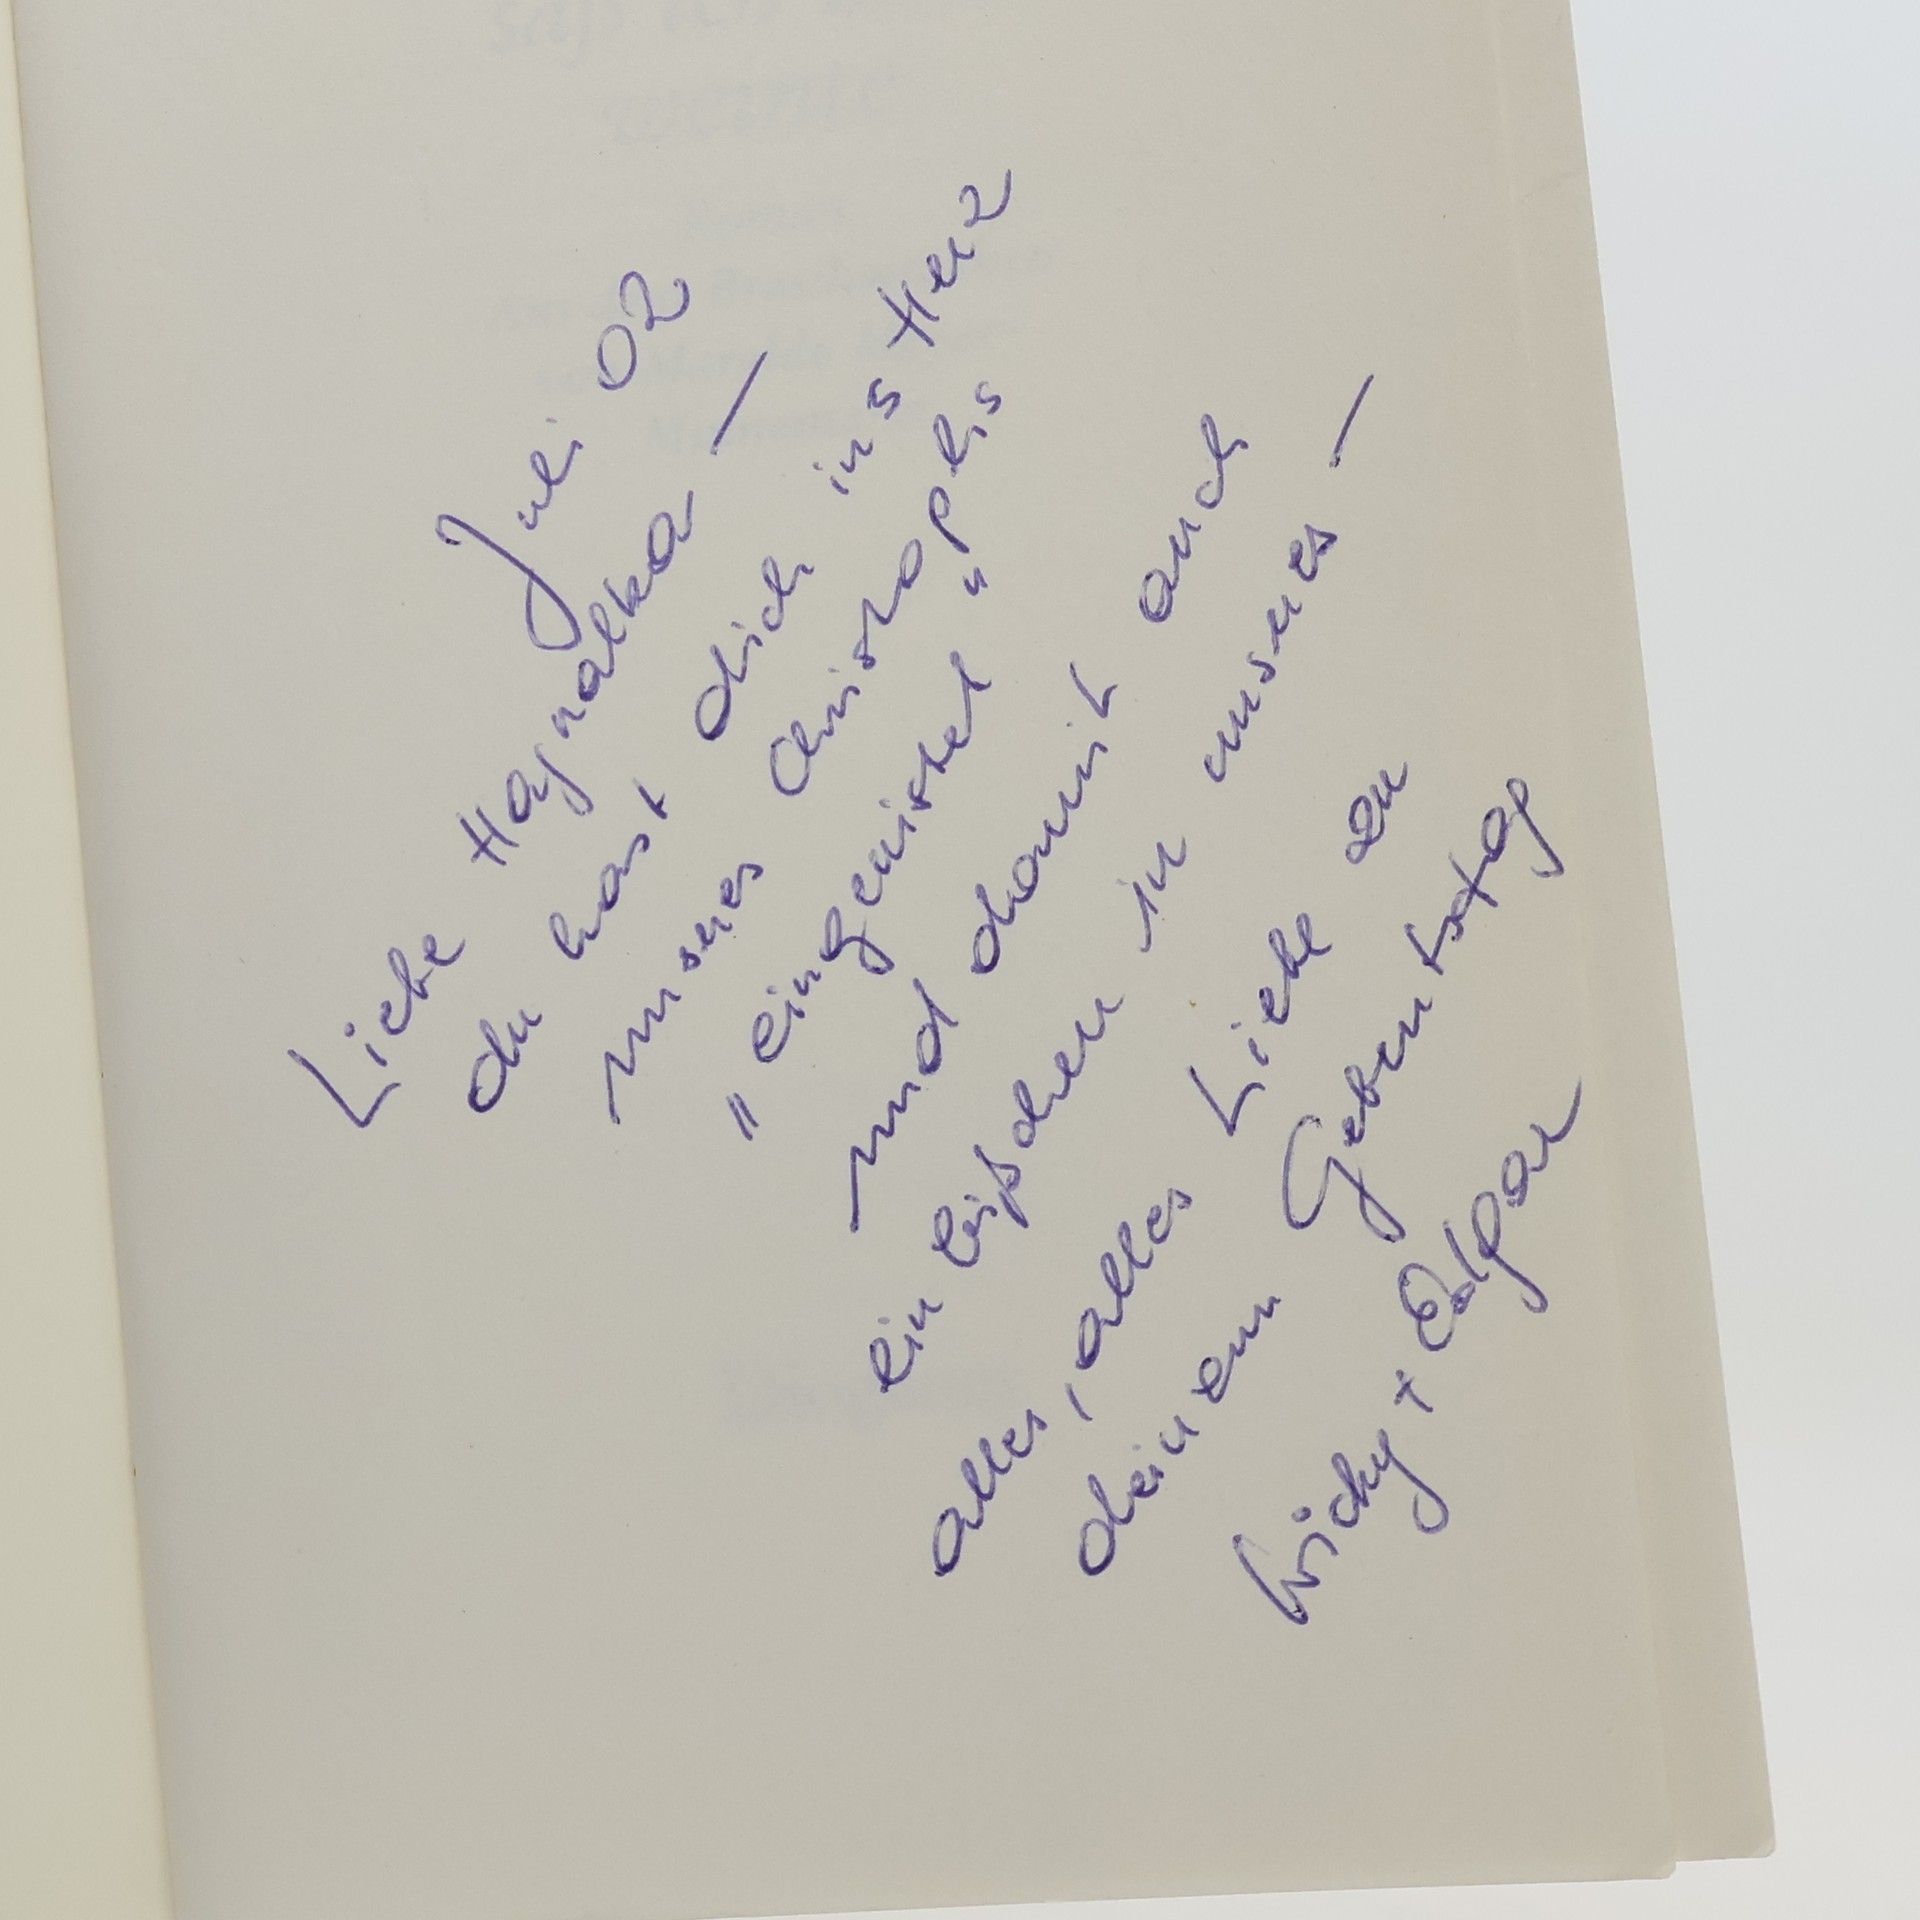 Juli 02
Liebe Hajnalka –
du hast dich ins Herz
unseres Christophs
"eingenistet"
und damit auch
ein bißchen in unseres –
alles, alles Liebe zu
deinem Geburtstag
Vicky + Edgar